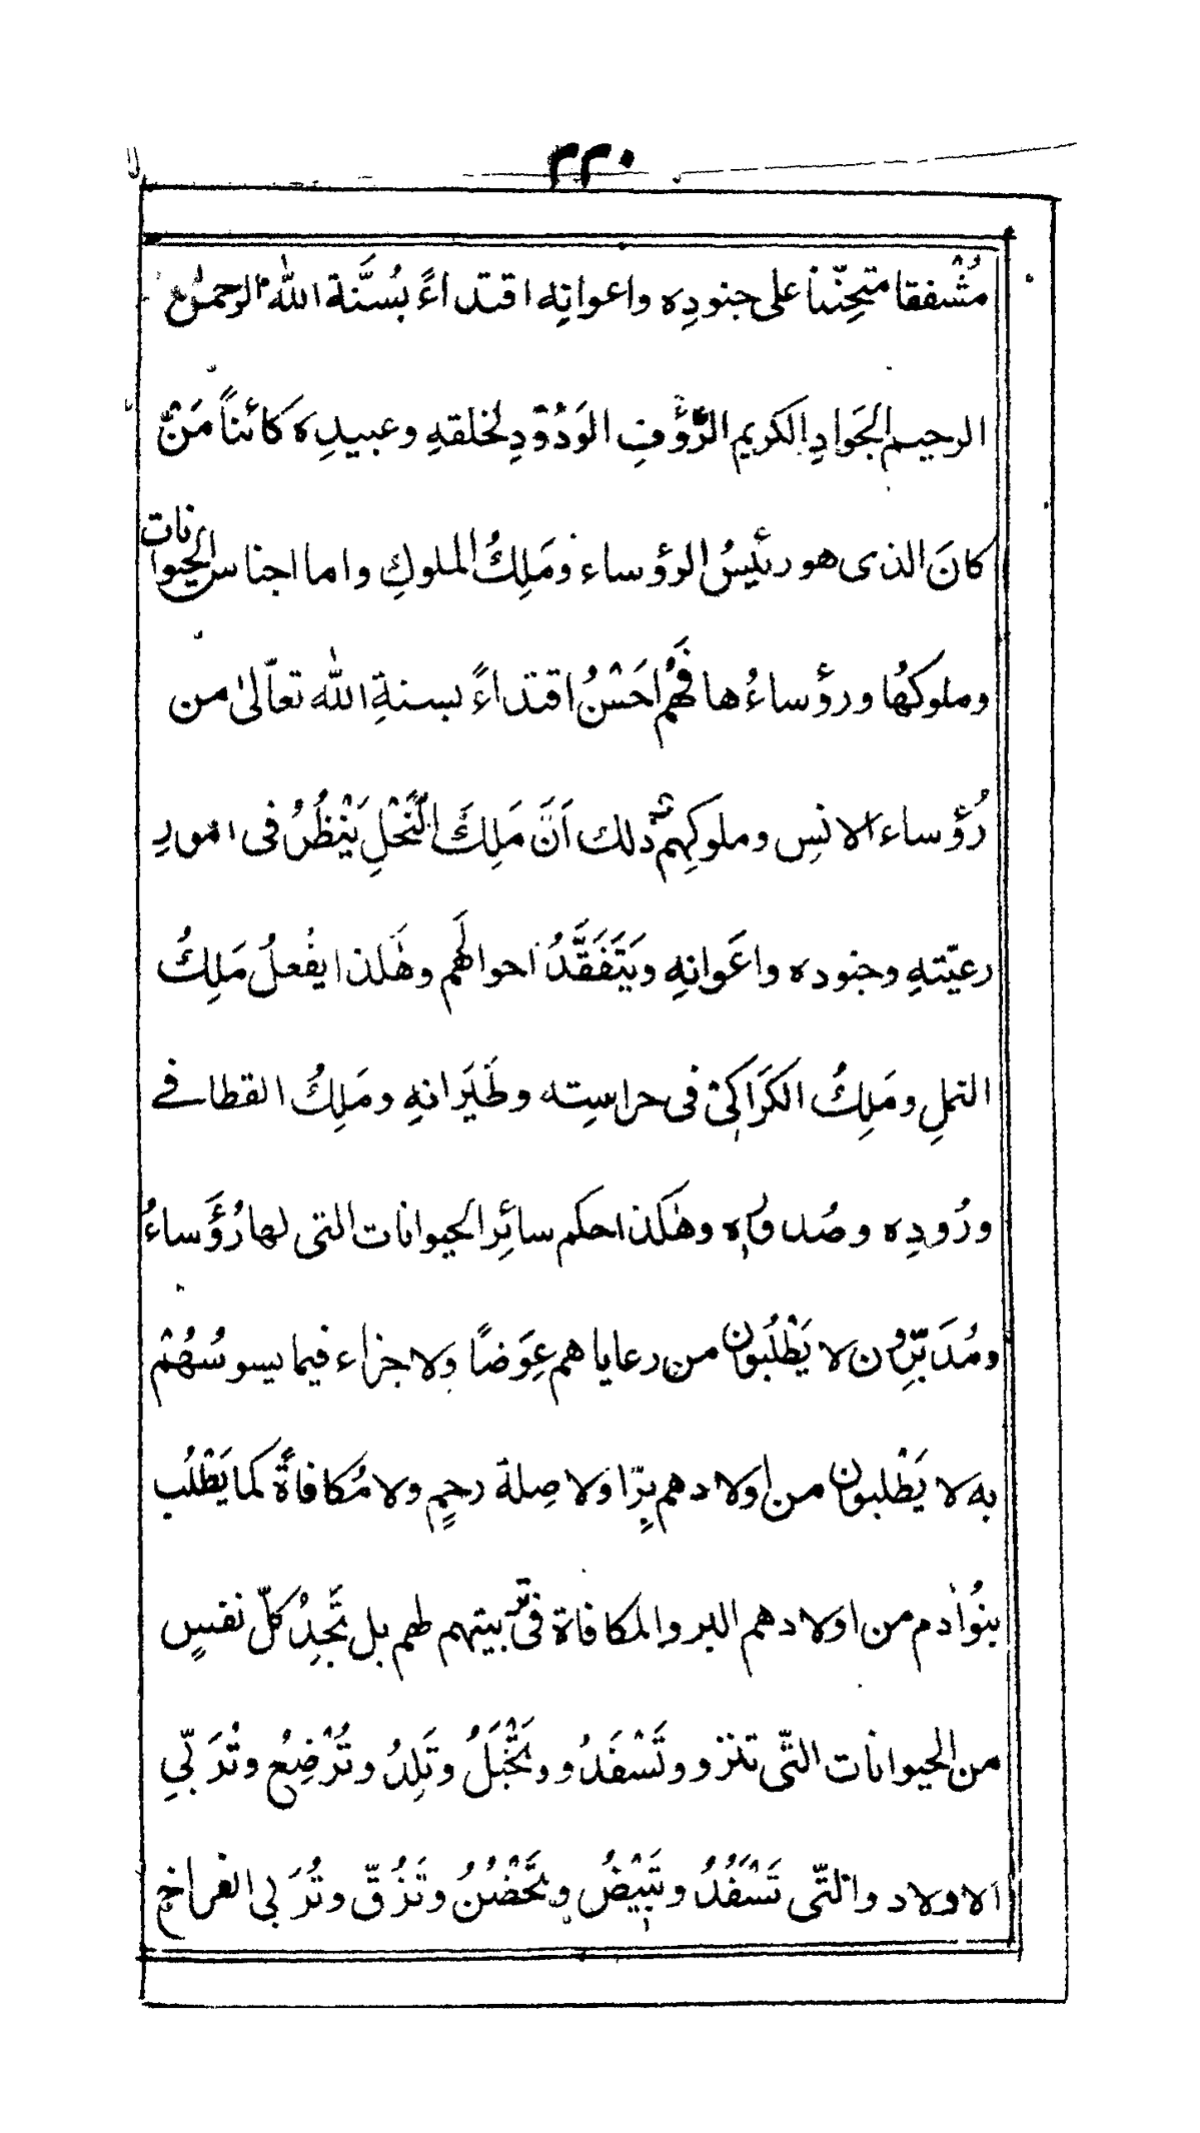 ٢٢٠
مُشْفقا متحنِّنا على جنودِه واعوانِه اقتداءً بسُنَّة الله الرحمن
الرحيم الجَوادِ الكريم الرَّؤُفِ الوَدُوْدِ لخلقهِ وعبيدِه كائناً مَنْ
كانَ الذى هو رئيسُ الرؤساء ومَلِكُ الملوكِ واما اجناس الحيوانات
وملوكهُا ورؤساءُها فَهُم اَحَسْنُ اقتداءً بسنةِ الله تعالىٰ من
رُؤساء الانسِ وملوكِهِم ذلك اَنَّ مَلِكَ النَّحْلِ يَنْظُرُ فى امورِ
رعيّتهِ وجنوده واعَوانِهِ ويَتَفَقَّدُ احوالَهم وهٰكذا يفْعلُ مَلِكُ
النملِ ومَلِكُ الكَرَاكِىْ فى حراسِته وطَيَرَانهِ ومَلِكُ القطا فے
ورُودِه وصُدورِه وهٰكذا حكم سائِر الحيوانات التى لها رُؤَساءُ
ومُدَبِّرُون لا يَطْلُبون من رعاياهم عِوَضًا ولا جزاء فيما يسوسُهُمْ
به لا يَطْلبون من اولادهم بِرًّا ولا صِلة رحمٍ ولا مُكافاةً كما يَطْلُب
بنُواٰدم من اولادهم البر والمكافاة فى تربيتهم لهم بل تَجِدُ كلّ نفسٍ
من الحيوانات التّى تنزو وتَسْفَدُ و وتَحْبَلُ وتَلِدُ وتُرْضِعُ وتُرَبّي
الاولاد والتّى تَسْفَدُ وتَبِيْضُ وتَحْضُنُ وتَزُقّ وتُرَبى الفراخ